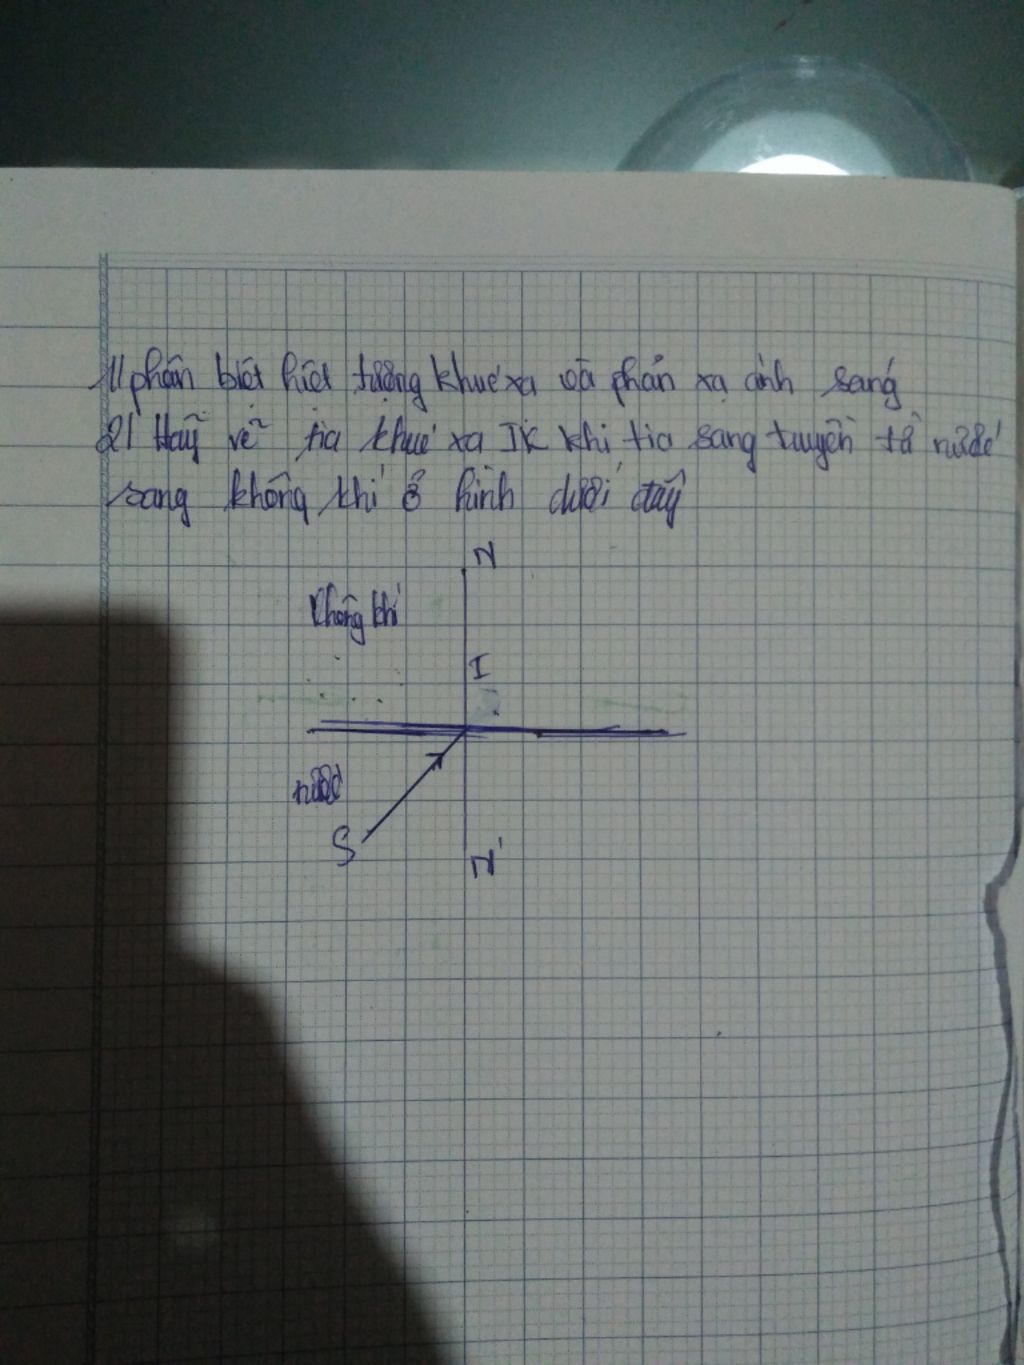 1/ phân biệt hiện tượng khuc xạ và phản xạ ánh sang
2/ Haỹ vẽ tia khuc xạ IK khi tia sang truyền từ nước
sang không khí ở hình dưới đây
N
Không khí
I
nước
S
N'